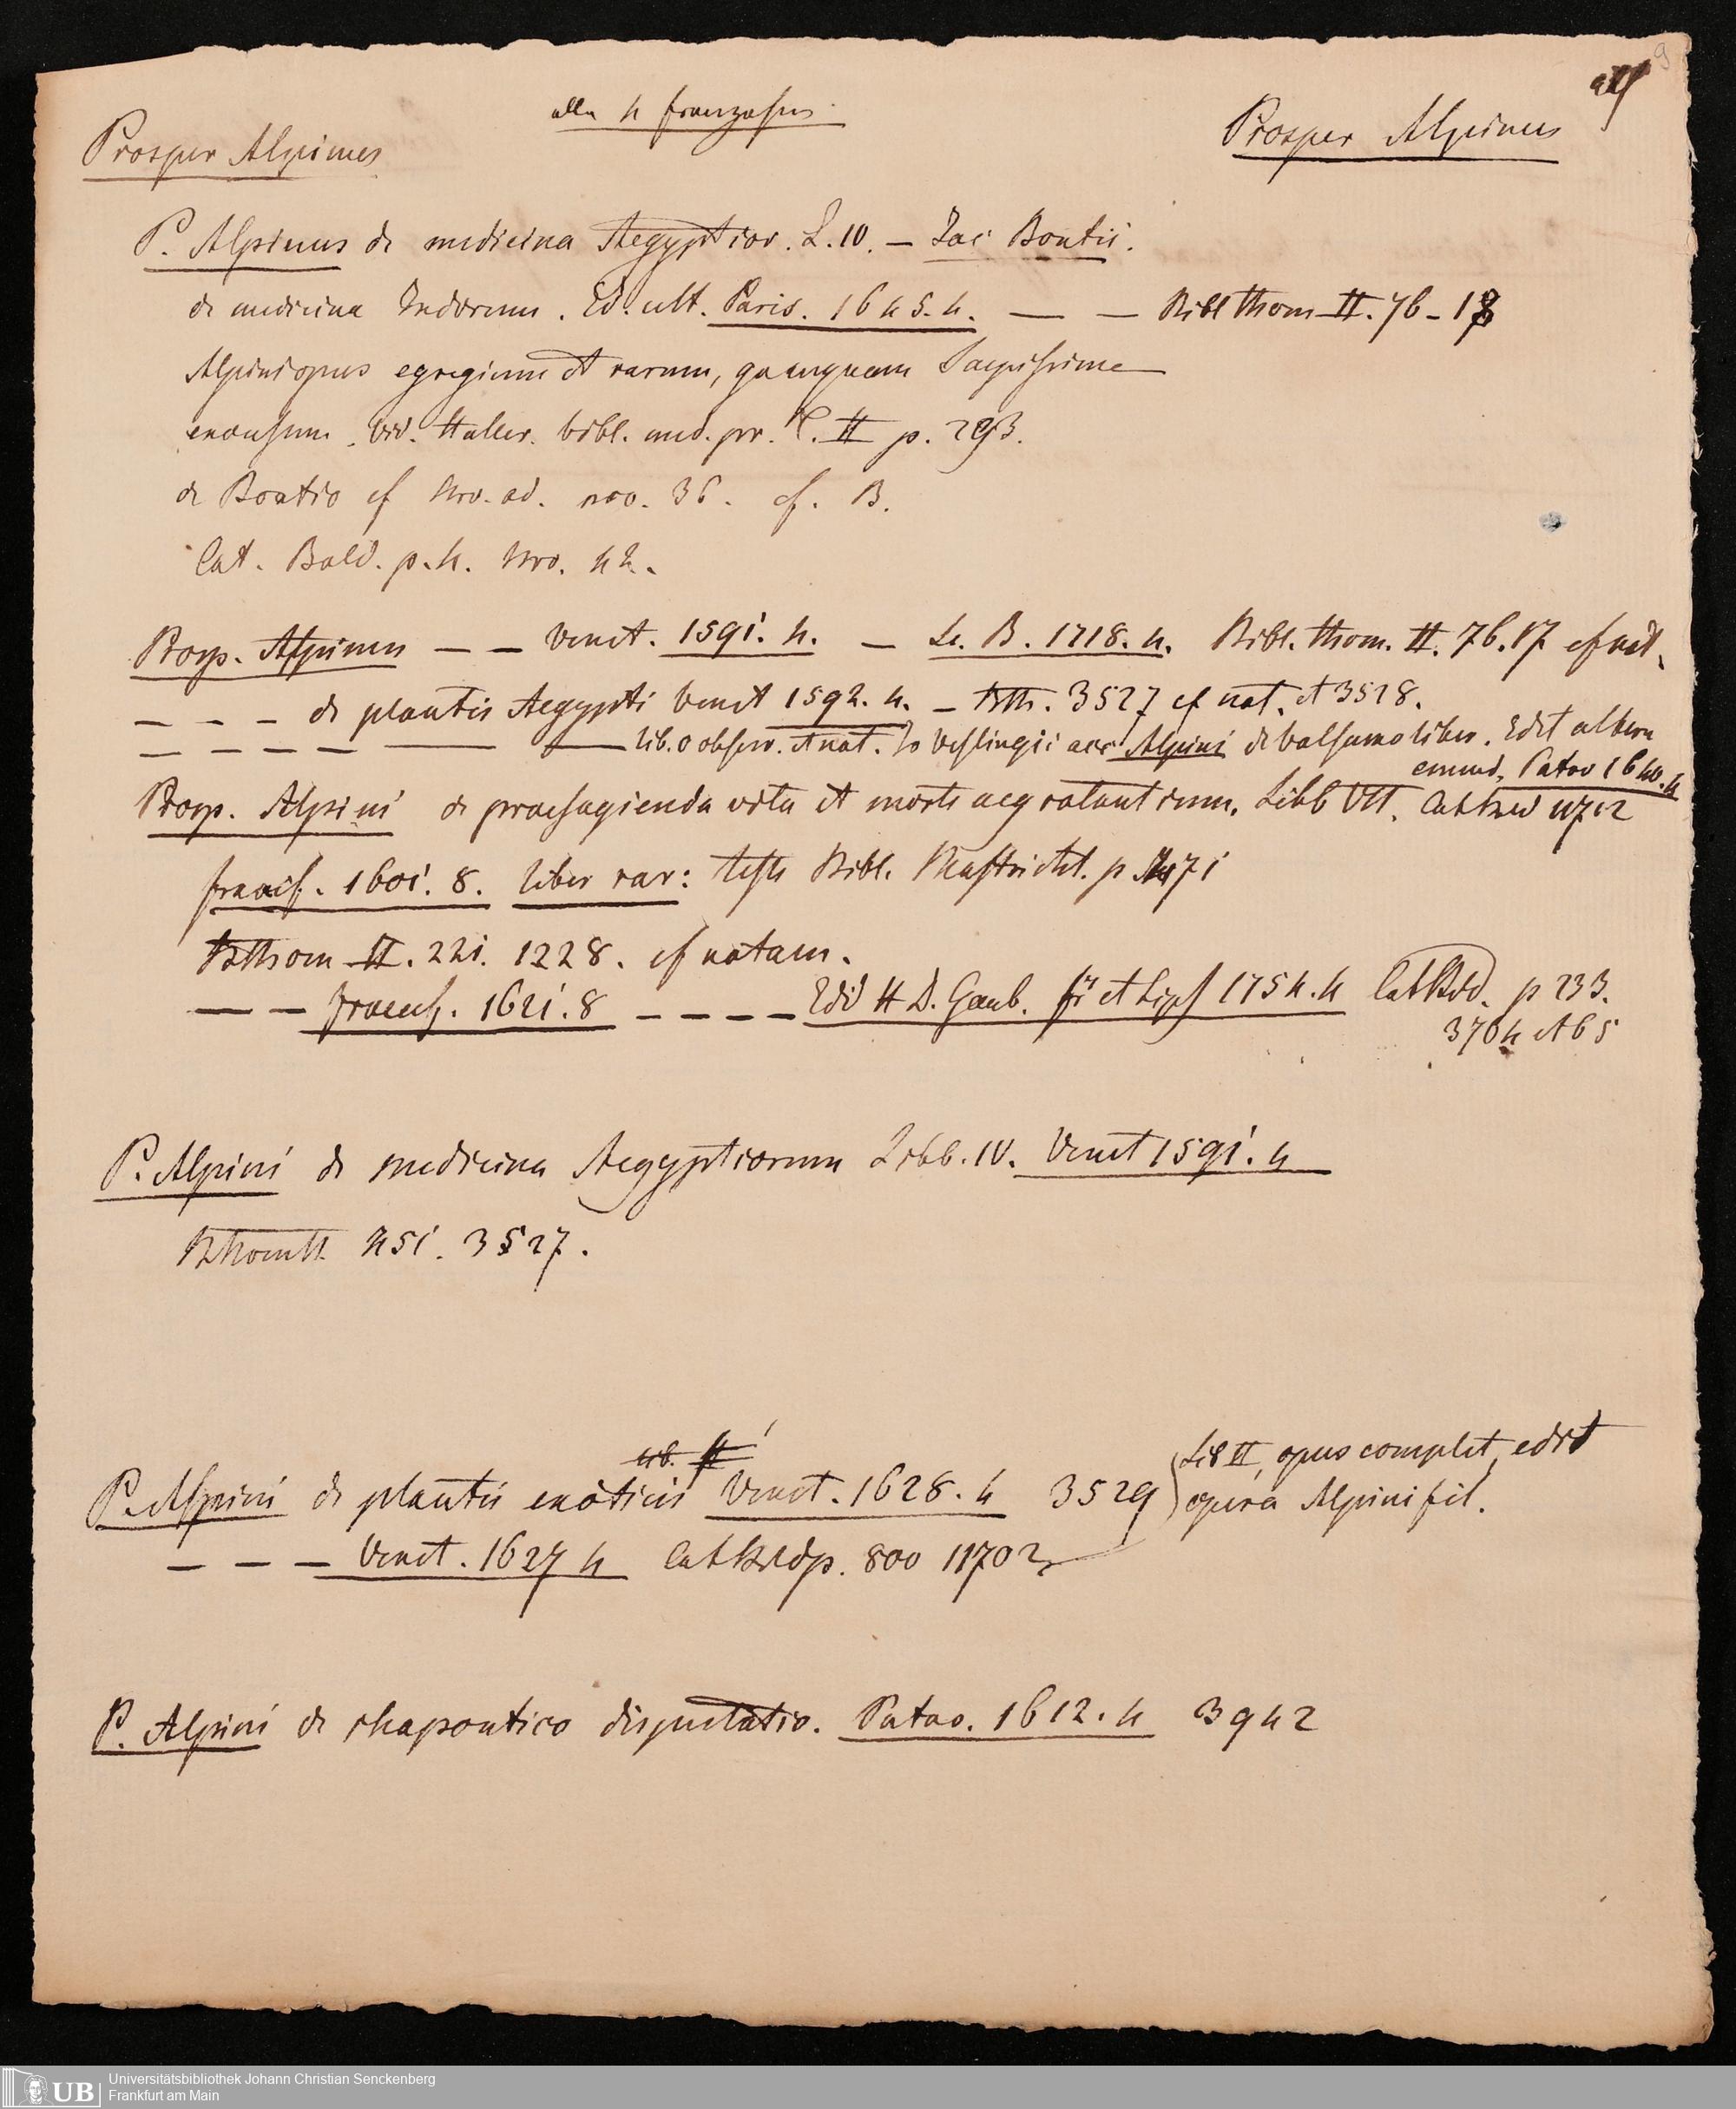 9
Prosper Alpinus
Prosper Alpinus
P. Alpinus de medicina Aegyptior. L. IV. — Jac Bontii.
de medicina Indorum. Ed. ult. Paris. 1645. 4. — — Bibl Thom II. 76-18
Alpini opus egregium et rarum, quamquam saepissime
excusum. Vid. Haller. bibl. med. pr. T. II p. 293.
de Bontio cf Nro. ad. nro. 36. cf. B.
Cat. Bald. p. 4. Nro. 42.
Prosp. Alpinus — — Venet. 1591. 4. — L. B. 1718. 4. Bibl. Thom. II. 76. 17 cf not.
— — — de plantis Aegypti Venet 1592. 4. — BTh. 3527 cf not. et 3528.
— — — — — — lib. c observ. et not. Jo Veslingii acc Alpini de balsamo liber. Edit altera
emend. Patav 1640. 4
Prosp. Alpini de praesagienda vita et morte aegrotantium. Libb VII.
Francf. 1601. 8. liber rar: teste Bibl. Mastricht. p 471
BThom II. 221. 1228. cf notam.
— — Francf. 1621. 8 — — — — Edid H D. Gaub. et Lips 1754. 4 p 233.
3704 et 65
P. Alpini de medicina Aegyptiorum Libb. IV. Venet 1591. 4
BThom II. 451. 3527.
lib. II
P. Alpini de plantis exoticis Venet. 1628. 4 3529 Lib II, opus complet, edit
opera Alpini fil.
— — — Venet. 1627 4 p. 800 11702
P. Alpini de rhapontico disputatio. Patav. 1612. 4 3942
UB
Universitätsbibliothek Johann Christian Senckenberg
Frankfurt am Main